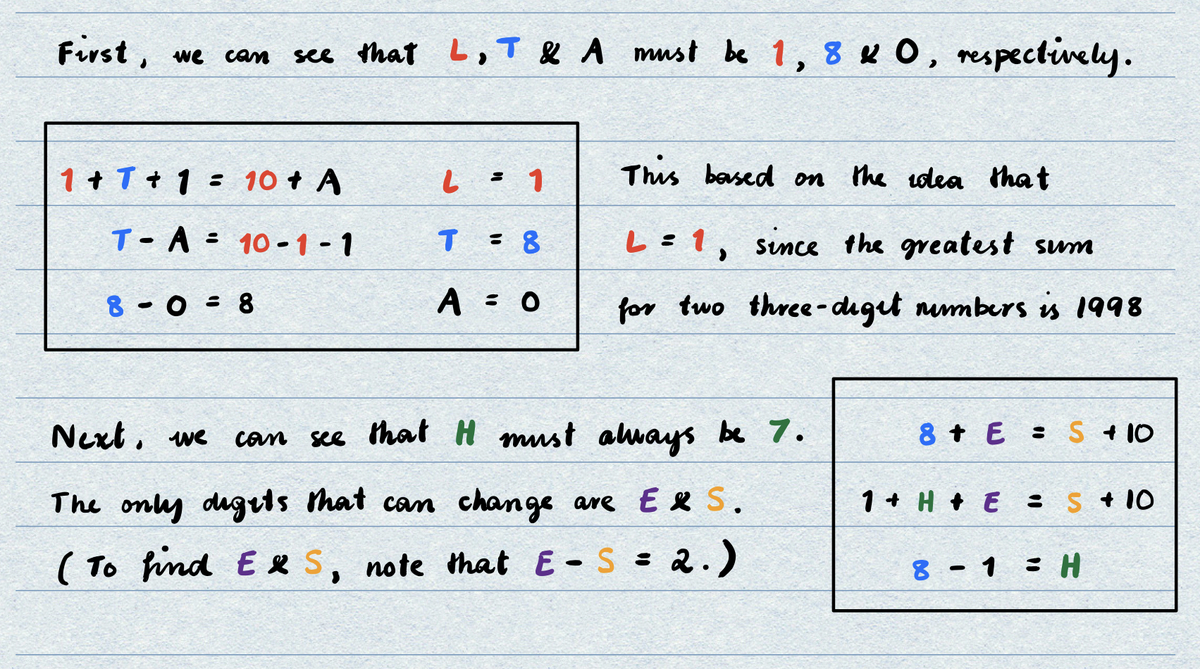 First, we can see that L, T & A must be 1, 8 & 0, respectively.
1 + T + 1 = 10 + A L = 1
T - A = 10 - 1 - 1 T = 8
8 - 0 = 8 A = 0
This based on the idea that
L = 1, since the greatest sum
for two three-digit numbers is 1998
Next, we can see that H must always be 7.
The only digits that can change are E & S.
( To find E & S, note that E - S = 2. )
8 + E = S + 10
1 + H + E = S + 10
8 - 1 = H